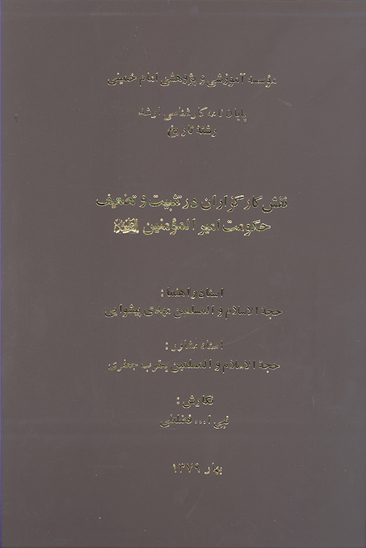 مؤسسه آموزشی و پژوهشی امام خمینی
پایان نامه کارشناسی ارشد
رشته تاریخ
نقش کارگزاران در تثبیت و تضعیف
حکومت امیر المؤمنین
استاد راهنما:
حجة الاسلام و المسلمین مهدی پیشوایی
استاد مشاور:
حجة الاسلام و المسلمین یعقوب جعفری
نگارش:
نبی ا...
بهار ۱۳۷۹